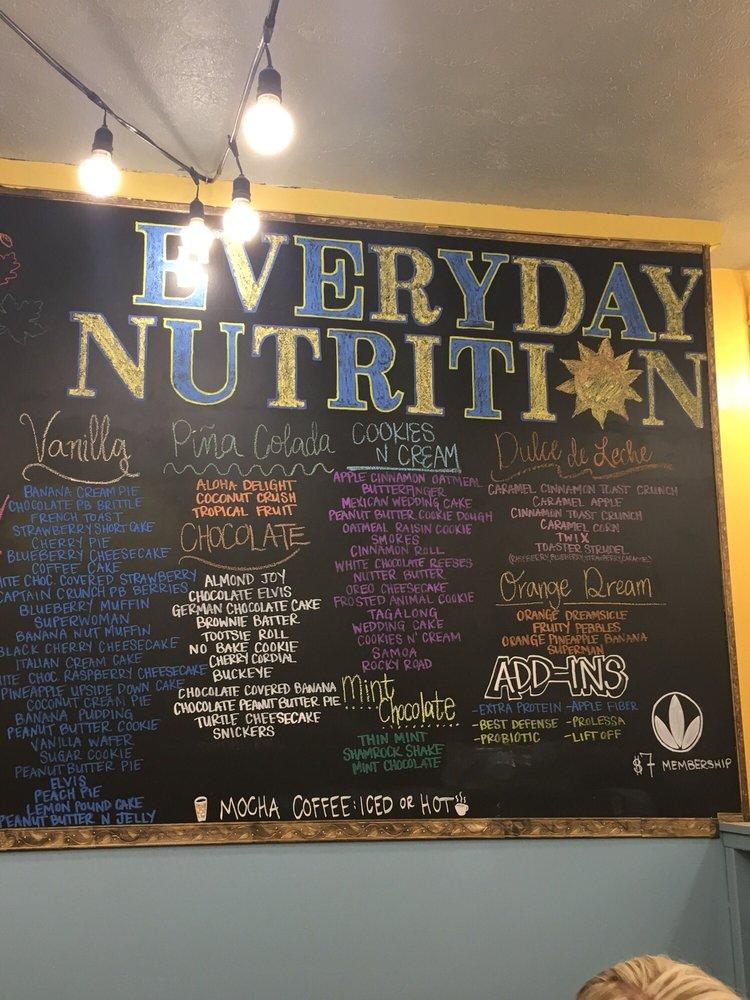 EVERYDAY
NUTRITION
Vanilla
BANANA CREAM PIE
CHOCOLATE PB BRITTLE
FRENCH TOAST
STRAWBERRY SHORTCAKE
CHERRY PIE
BLUEBERRY CHEESECAKE
COFFEE CAKE
ITE CHOC COVERED STRAWBERRY
CAPTAIN CRUNCH PB BERRIES
BLUEBERRY MUFFIN
SUPERWOMAN
BANANA NUT MUFFIN
BLACK CHERRY CHEESECAKE
ITALIAN CREAM CAKE
ITE CHOC RASPBERRY CHEESECAKE
PINEAPPLE UPSIDE DOWN CAKE
COCONUT CREAM PIE
BANANA PUDDING
PEANUT BUTTER COOKIE
VANILLA WAFER
SUGAR COOKIE
PEANUT BUTTER PIE
ELVIS
PEACH PIE
LEMON POUND CAKE
PEANUT BUTTER N JELLY
Piña Colada
ALOHA DELIGHT
COCONUT CRUSH
TROPICAL FRUIT
CHOCOLATE
ALMOND JOY
CHOCOLATE ELVIS
GERMAN CHOCOLATE CAKE
BROWNIE BATTER
TOOTSIE ROLL
NO BAKE COOKIE
CHERRY CORDIAL
BUCKEYE
CHOCOLATE COVERED BANANA
CHOCOLATE PEANUT BUTTER PIE
TURTLE CHEESECAKE
SNICKERS
COOKIES
N' CREAM
APPLE CINNAMON OATMEAL
BUTTERFINGER
MEXICAN WEDDING CAKE
PEANUT BUTTER COOKIE DOUGH
OATMEAL RAISIN COOKIE
SMORES
CINNAMON ROLL
WHITE CHOCOLATE REESES
NUTTER BUTTER
OREO CHEESECAKE
FROSTED ANIMAL COOKIE
TAGALONG
WEDDING CAKE
COOKIES N' CREAM
SAMOA
ROCKY ROAD
Mint
Chocolate
THIN MINT
SHAMROCK SHAKE
MINT CHOCOLATE
Dulce de Leche
CARAMEL CINNAMON TOAST CRUNCH
CARAMEL APPLE
CINNAMON TOAST CRUNCH
CARAMEL CORN
TWIX
TOASTER STRUDEL
Orange Dream
ORANGE DREAMSICLE
FRUITY PEBBLES
ORANGE PINEAPPLE BANANA
SUPERMAN
ADD-INS
-EXTRA PROTEIN -APPLE FIBER
-BEST DEFENSE -PROLESSA
-PROBIOTIC -LIFT OFF
$7 MEMBERSHIP
MOCHA COFFEE: ICED OR HOT